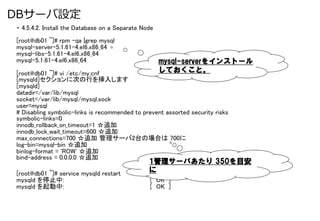 DBサーバ設定
・4.5.4.2. Install the Database on a Separate Node
[root@db01 ~]# rpm -qa |grep mysql
mysql-server-5.1.61-4.el6.x86_64
mysql-libs-5.1.61-4.el6.x86_64
mysql-5.1.61-4.el6.x86_64
mysql-serverをインストール
しておくこと。
[root@db01 ~]# vi /etc/my.cnf
[mysqld]セクションに次の行を挿入します
[mysqld]
datadir=/var/lib/mysql
socket=/var/lib/mysql/mysql.sock
user=mysql
# Disabling symbolic-links is recommended to prevent assorted security risks
symbolic-links=0
innodb_rollback_on_timeout=1 ☆追加
innodb_lock_wait_timeout=600 ☆追加
max_connections=700 ☆追加 管理サーバ2台の場合は 700に
log-bin=mysql-bin ☆追加
binlog-format = 'ROW' ☆追加
bind-address = 0.0.0.0 ☆追加
1管理サーバあたり 350を目安
に
[root@db01 ~]# service mysqld restart
mysqld を停止中: [ OK ]
mysqld を起動中: [ OK ]